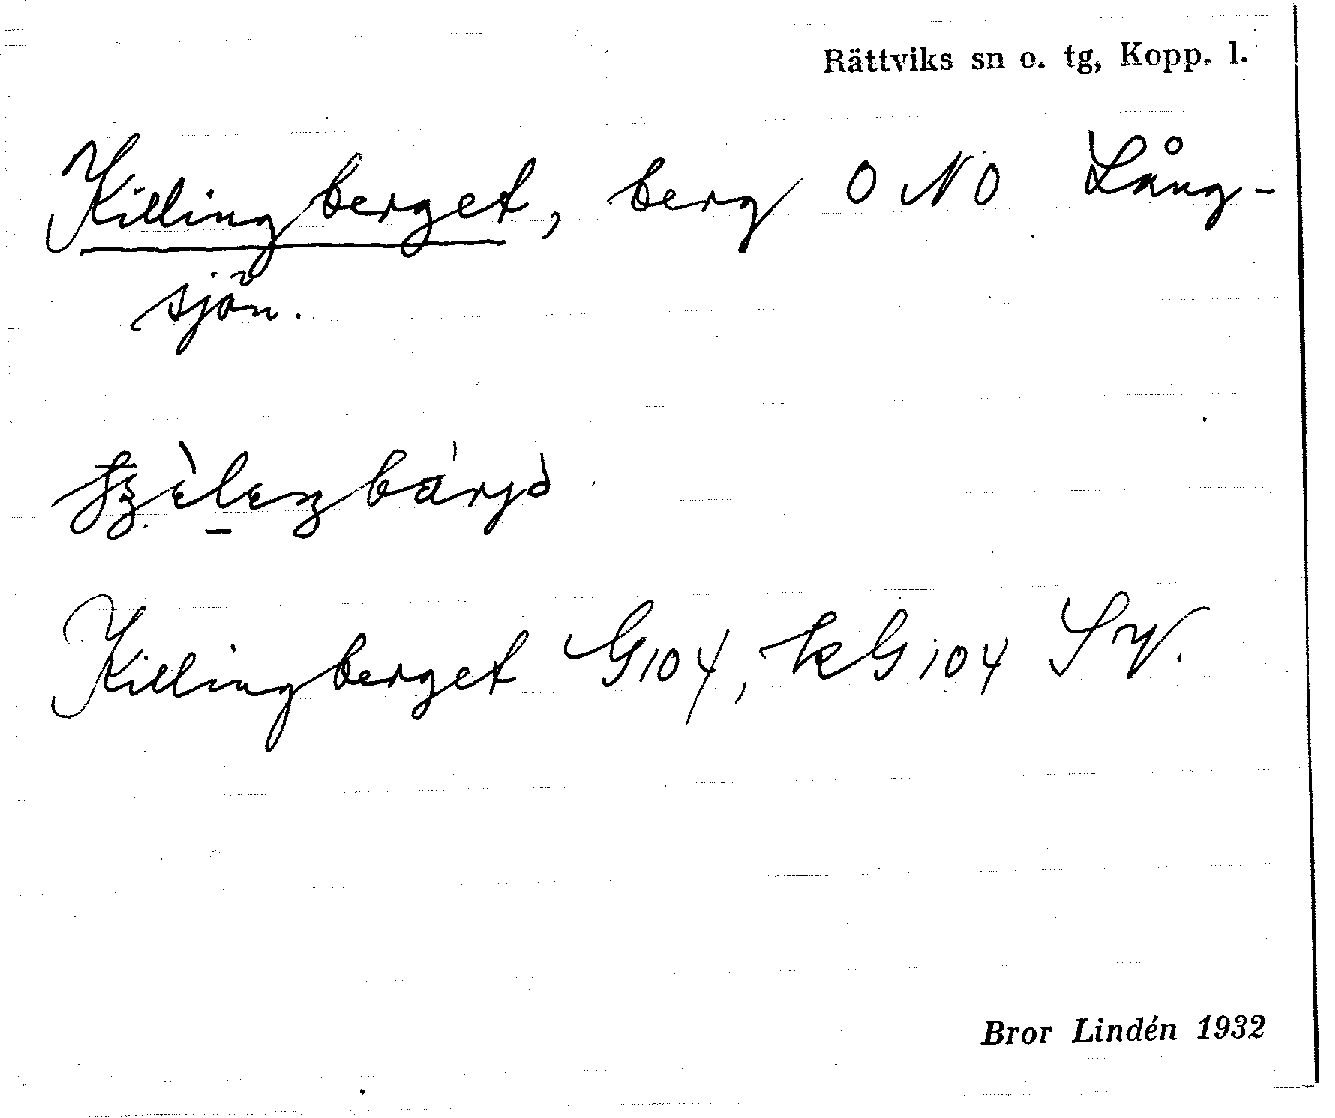 Rättviks sn o. tg, Kopp. l.
Killingberget, berg ONO Lång-
sjön.
Killingberget G104, kG104 SV.
Bror Lindén 1932